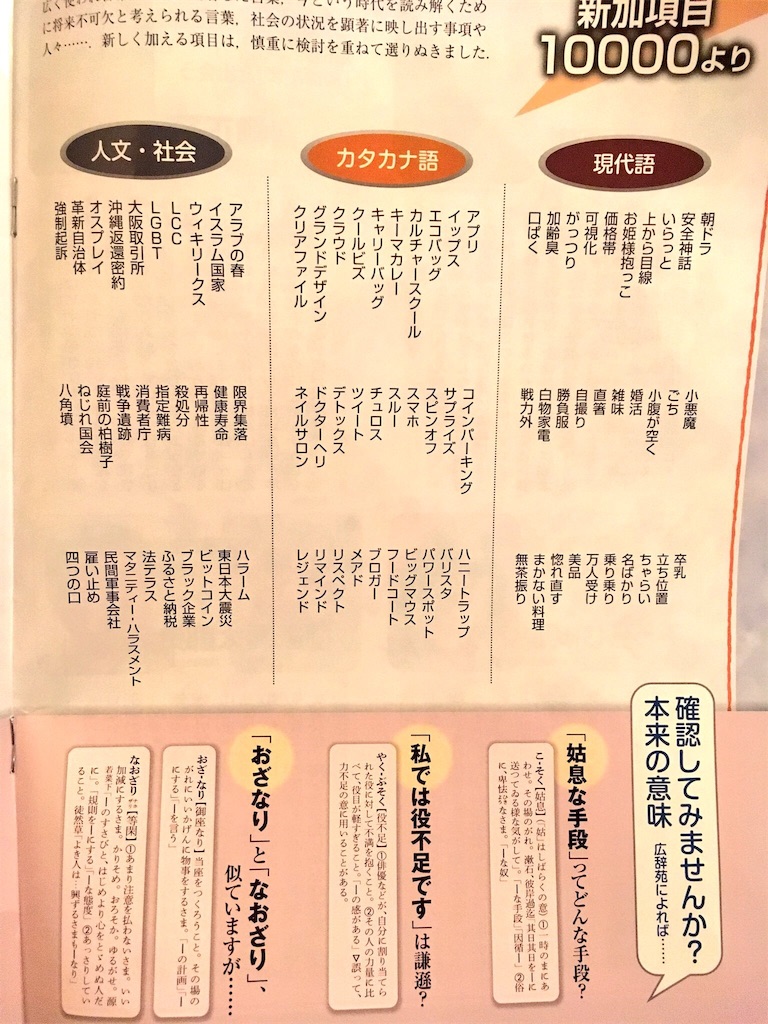 今という時代を読み解くため
に将来不可欠と考えられる言葉，社会の状況を顕著に映し出す事項や
人々……．新しく加える項目は，慎重に検討を重ねて選りぬきました．
新加項目
10000より
現代語
朝ドラ
安全神話
いらっと
上から目線
お姫様抱っこ
価格帯
可視化
がっつり
加齢臭
口ぱく
小悪魔
ごち
小腹が空く
婚活
雑味
直箸
自撮り
勝負服
白物家電
戦力外
卒乳
立ち位置
ちゃらい
名ばかり
乗り乗り
万人受け
美品
惚れ直す
まかない料理
無茶振り
カタカナ語
アプリ
イップス
エコバッグ
カルチャースクール
キーマカレー
キャリーバッグ
クールビズ
クラウド
グランドデザイン
クリアファイル
コインパーキング
サプライズ
スピンオフ
スマホ
スルー
チュロス
ツイート
デトックス
ドクターヘリ
ネイルサロン
ハニートラップ
バリスタ
パワースポット
ビッグマウス
フードコート
ブロガー
メアド
リスペクト
リマインド
レジェンド
人文・社会
アラブの春
イスラム国家
ウィキリークス
LCC
LGBT
大阪取引所
沖縄返還密約
オスプレイ
革新自治体
強制起訴
限界集落
健康寿命
再帰性
殺処分
指定難病
消費者庁
戦争遺跡
庭前の柏樹子
ねじれ国会
八角墳
ハラーム
東日本大震災
ビットコイン
ブラック企業
ふるさと納税
法テラス
マタニティー・ハラスメント
民間軍事会社
雇い止め
四つの口
確認してみませんか？
本来の意味
広辞苑によれば……
「姑息な手段」ってどんな手段？
こ‐そく【姑息】（「姑」はしばらくの意）①一時のまにあ
わせ。その場のがれ。漱石、彼岸過迄「其日其日を―に
送つてゐる様な気がして」。「―な手段」「因循―」②俗
に、卑怯なさま。「―な奴」
「私では役不足です」は謙遜？
やく‐ぶそく【役不足】①俳優などが、自分に割り当てら
れた役に対して不満を抱くこと。②その人の力量に比
べて、役目が軽すぎること。「―の感がある」▽誤って、
力不足の意に用いることがある。
「おざなり」と「なおざり」、
似ていますが……
お‐ざなり【御座なり】当座をつくろうこと。その場の
がれにいいかげんに物事をするさま。「―の計画」「―
にする」「―を言う」
なおざり【等閑】①あまり注意を払わないさま。いい
加減にするさま。かりそめ。おろそか。ゆるがせ。源
若菜下「―のすさびと、はじめより心をとゞめぬ人だ
に」。「規則を―にする」「―な態度」②あっさりしてい
ること。徒然草「よき人は…興ずるさまも―なり」